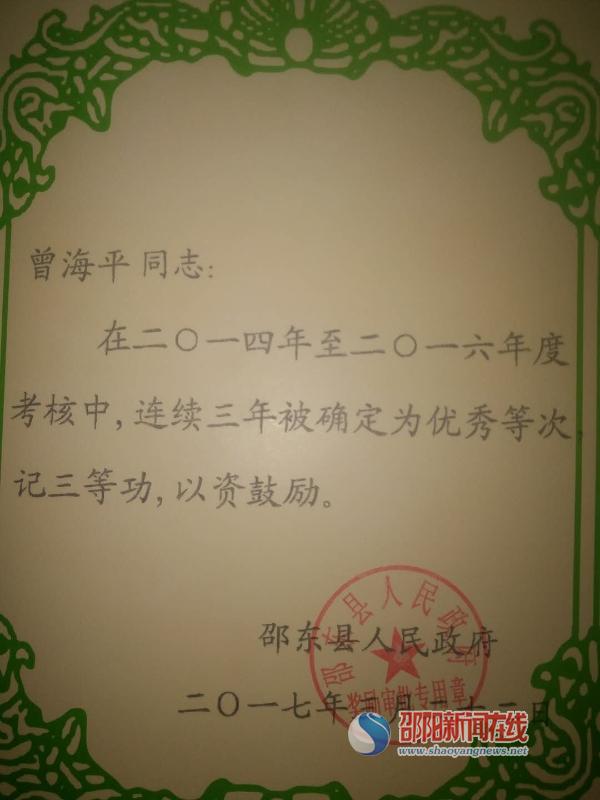 曾海平同志：
在二〇一四年至二〇一六年度
考核中，连续三年被确定为优秀等次，
记三等功，以资鼓励。
邵东县人民政府
邵东县人民政府
奖励审批专用章
二〇一七年二月二十二日
邵阳新闻在线
www.shaoyangnews.net